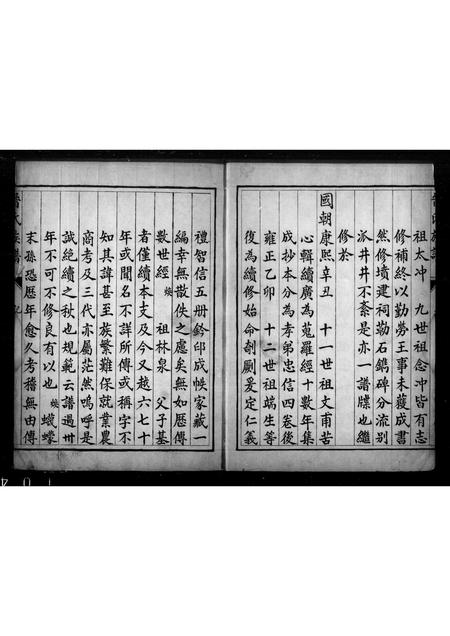 祖太冲 九世祖念冲皆有志
修補終以勤勞王事未蕆成書
然修墳建祠勒石鐫碑分流別
派井井不紊是亦一譜牒也繼
修於
國朝康熙辛丑 十一世祖文甫苦
心輯續廣為蒐羅經十數年集
成抄本分為孝弟忠信四卷後
雍正乙卯 十二世祖端生等
復為續修始命剞劂爰定仁義
禮智信五冊鈐印成帙家藏一
編幸無散佚之慮矣無如歷傳
數世經 煥 祖林泉 父子基
者僅續本支及今又越六七十
年或聞名不詳所傳或稱字不
知其諱甚至族繁難保就業農
商考及三代亦屬茫然嗚呼是
誠絶續之秋也規範云譜過卅
年不可不修良有以也 煥 蠛蠓
末孫恐歷年愈久考稽無由傳